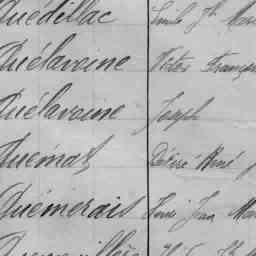 Quédillac Emile Jh Marie
Quélavoine Victor François
Quélavoine Joseph
Quémat Désiré René
Quémerais Henri Jean Mar